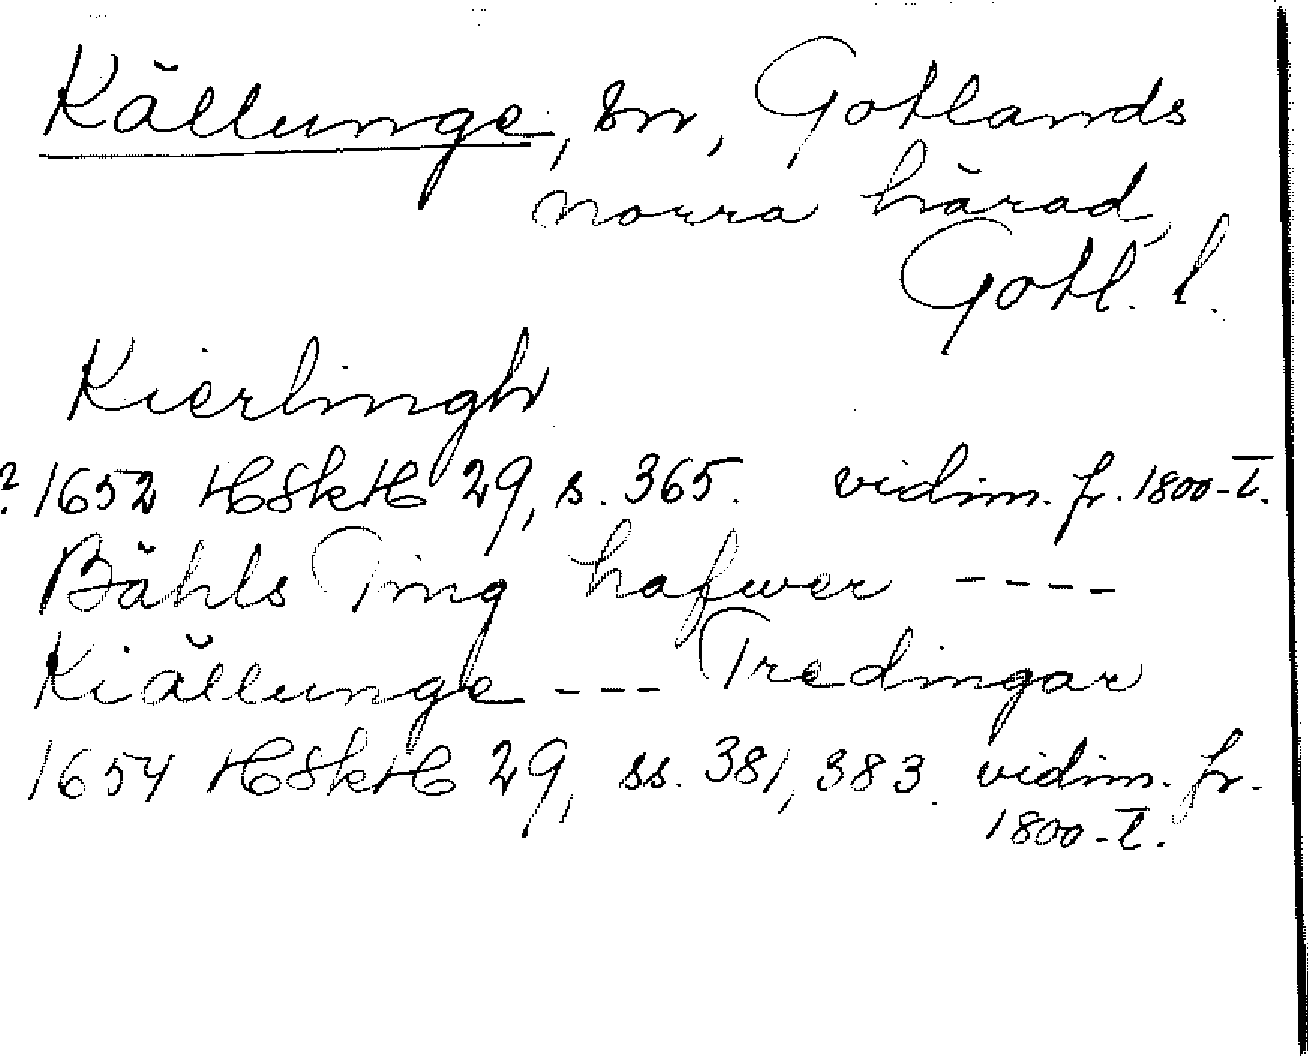 Källunge, sn, Gotlands
norra härad,
Gotl. l.
Kierlingh
? 1652 HSkH 29, s. 365. vidim. fr. 1800-t.
Bähls Ting hafwer ----
Kiällunge --- Tredingar
1654 HSkH 29, ss. 381, 383. vidim. fr.
1800-t.